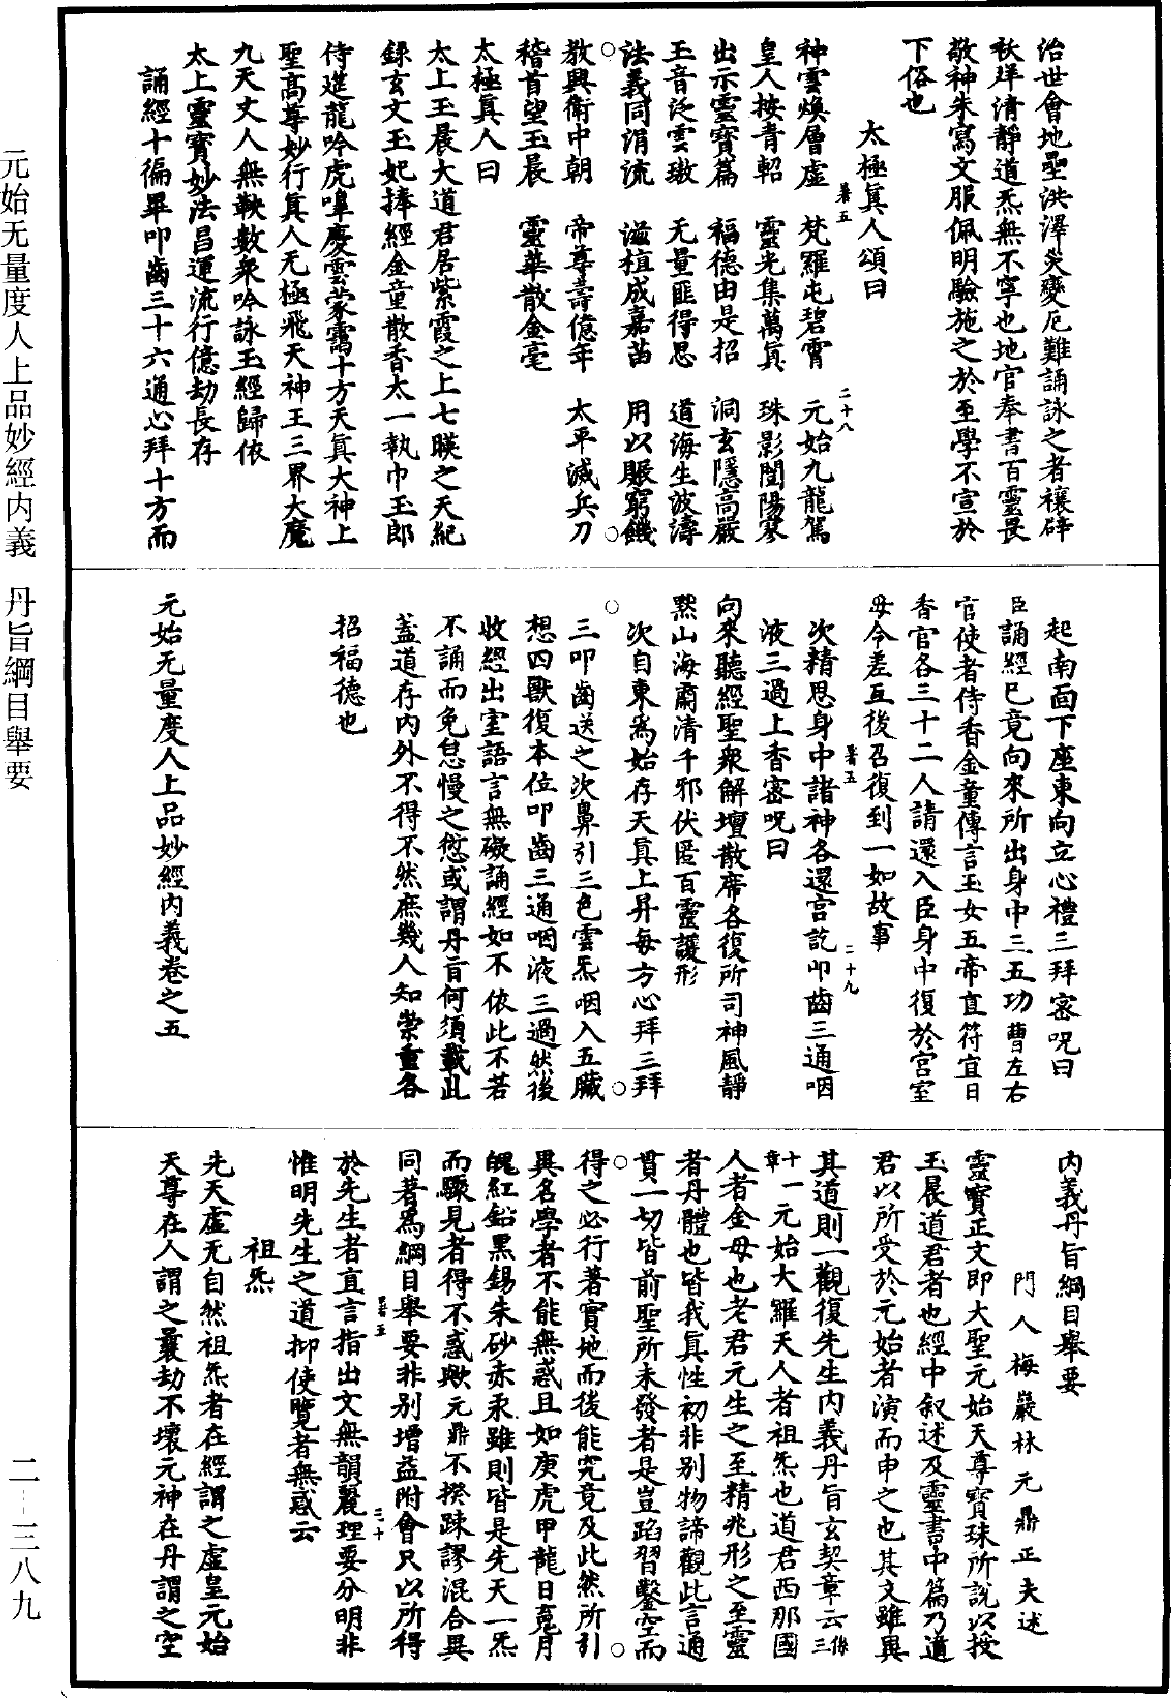 治世會地壘洪澤災變厄難誦詠之者禳辟
袄祥清靜道炁無不寧也地官奉書百靈畏
敬神朱寫文服佩明驗施之於至學不宣於
下俗也
太極眞人頌曰
神雲煥層虛　梵羅屯碧霄　元始九龍駕
皇人按青軺　靈光集萬眞　珠影闓陽寒
出示靈寶篇　福德由是招　洞玄隱高嚴
玉音泛雲璈　无量匪得思　道海生波濤
法義同涓流　滋植成嘉苗　用以賑窮饑
教興衛中朝　帝尊壽億年　太平滅兵刀
稽首望玉晨　靈華散金毫
太極眞人曰
太上玉晨大道君居紫霞之上七暎之天紀
錄玄文玉妃捧經金童散香太一執巾玉郎
侍筵龍吟虎嘷慶雲蒙靄十方天眞大神上
聖高尊妙行眞人无極飛天神王三界大魔
九天丈人無鞅數衆吟詠玉經歸依
太上靈寶妙法昌運流行億劫長存
誦經十徧畢叩齒三十六通心拜十方而
起南面下座東向立心禮三拜密呪曰
臣誦經已竟向來所出身中三五功曹左右
官使者侍香金童傳言玉女五帝直符直日
香官各三十二人請還入臣身中復於宮室
毋令差互後召復到一如故事
次精思身中諸神各還宮訖叩齒三通咽
液三過上香密呪曰
向來聽經聖衆解壇散席各復所司神風靜
默山海肅清千邪伏匿百靈護形
次自東爲始存天眞上昇每方心拜三拜
三叩齒送之次鼻引三色雲炁咽入五臟
想四獸復本位叩齒三通咽液三過然後
收經出室語言無礙誦經如不依此不若
不誦而免怠慢之愆或謂丹旨何須載此
蓋道存内外不得不然庶幾人知崇重各
招福德也
元始无量度人上品妙經内義卷之五
内義丹旨綱目舉要
門人梅巖林元鼎正夫述
靈寶正文即大聖元始天尊寶珠所說以授
玉晨道君者也經中叙述及靈書中篇乃道
君以所受於元始者演而申之也其文雖異
其道則一觀復先生内義丹旨玄契章云三條
十一章元始大羅天人者祖炁也道君西那國
人者金母也老君元生之至精兆形之至靈
者丹體也皆我眞性初非别物諦觀此言通
貫一切皆前聖所未發者是豈蹈習鑿空而
得之必行著實地而後能究竟及此然所引
異名學者不能無惑且如庚虎甲龍日䰟月
魄紅鉛黑錫朱砂赤汞雖則皆是先天一炁
而驟見者得不惑歟元鼎不揆踈謬混合異
同著爲綱目舉要非别增益附會只以所得
於先生者直言指出文無韻麗理要分明非
惟明先生之道抑使覽者無惑云
祖炁
先天虛无自然祖炁者在經謂之虛皇元始
天尊在人謂之曩劫不壞元神在丹謂之空
暑五　二十八
暑五　二十九
暑五　三十
元始无量度人上品妙經内義　丹旨綱目舉要
二–三八九